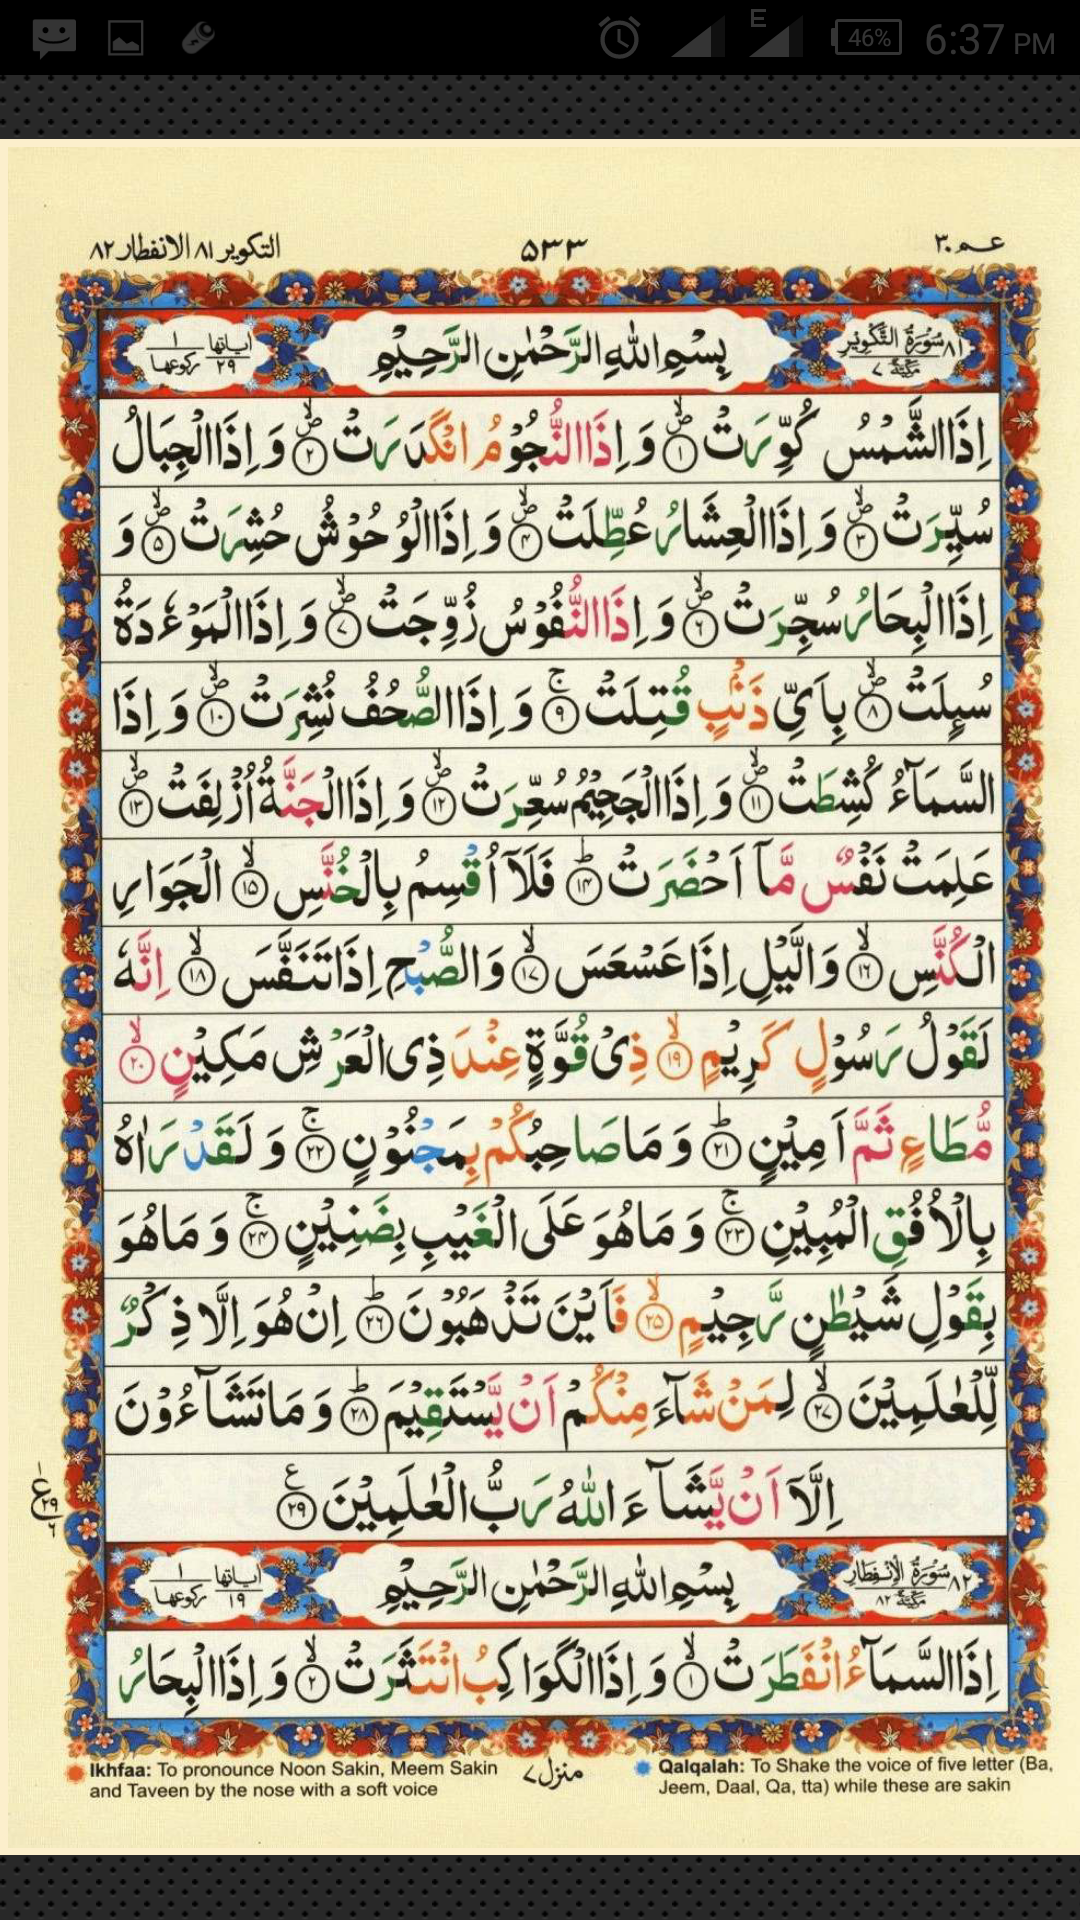 46% 6:37 PM
E
التكوير ٨١ الانفطار ٨٢
۵۳۳
عـم ٣٠
٨١ سُوْرَةُ التَّكْوِيْرِ مَكِّيَّةٌ ٧
بِسْمِ اللهِ الرَّحْمٰنِ الرَّحِيْمِ
اٰیاتها ٢٩ رکوعها ١
اِذَا الشَّمْسُ كُوِّرَتْ ۙ۱ وَ اِذَا النُّجُوْمُ انْكَدَرَتْ ۙ۲ وَ اِذَا الْجِبَالُ
سُيِّرَتْ ۙ۳ وَ اِذَا الْعِشَارُ عُطِّلَتْ ۙ۴ وَ اِذَا الْوُحُوْشُ حُشِرَتْ ۙ۵ وَ
اِذَا الْبِحَارُ سُجِّرَتْ ۙ۶ وَ اِذَا النُّفُوْسُ زُوِّجَتْ ۙ۷ وَ اِذَا الْمَوْءٗدَةُ
سُىِٕلَتْ ۙ۸ بِاَىِّ ذَنْۢبٍ قُتِلَتْ ۚ۹ وَ اِذَا الصُّحُفُ نُشِرَتْ ۙ۱۰ وَ اِذَا
السَّمَآءُ كُشِطَتْ ۙ۱۱ وَ اِذَا الْجَحِيْمُ سُعِّرَتْ ۙ۱۲ وَ اِذَا الْجَنَّةُ اُزْلِفَتْ ۙ۱۳
عَلِمَتْ نَفْسٌ مَّاۤ اَحْضَرَتْ ؕ۱۴ فَلَاۤ اُقْسِمُ بِالْخُنَّسِ ۙ۱۵ الْجَوَارِ
الْكُنَّسِ ۙ۱۶ وَ الَّيْلِ اِذَا عَسْعَسَ ۙ۱۷ وَ الصُّبْحِ اِذَا تَنَفَّسَ ۙ۱۸ اِنَّهٗ
لَقَوْلُ رَسُوْلٍ كَرِيْمٍ ۙ۱۹ ذِىْ قُوَّةٍ عِنْدَ ذِى الْعَرْشِ مَكِيْنٍ ۙ۲۰
مُّطَاعٍ ثَمَّ اَمِيْنٍ ؕ۲۱ وَ مَا صَاحِبُكُمْ بِمَجْنُوْنٍ ۚ۲۲ وَ لَقَدْ رَاٰهُ
بِالْاُفُقِ الْمُبِيْنِ ۚ۲۳ وَ مَا هُوَ عَلَى الْغَيْبِ بِضَنِيْنٍ ۚ۲۴ وَ مَا هُوَ
بِقَوْلِ شَيْطٰنٍ رَّجِيْمٍ ۙ۲۵ فَاَيْنَ تَذْهَبُوْنَ ؕ۲۶ اِنْ هُوَ اِلَّا ذِكْرٌ
لِّلْعٰلَمِيْنَ ۙ۲۷ لِمَنْ شَآءَ مِنْكُمْ اَنْ يَّسْتَقِيْمَ ؕ۲۸ وَ مَا تَشَآءُوْنَ
اِلَّاۤ اَنْ يَّشَآءَ اللّٰهُ رَبُّ الْعٰلَمِيْنَ ۲۹ ع
١ ع ٢٩ ٦
٨٢ سُوْرَةُ الْاِنْفِطَارِ مَكِّيَّةٌ ٨٢
بِسْمِ اللهِ الرَّحْمٰنِ الرَّحِيْمِ
اٰیاتها ١٩ رکوعها ١
اِذَا السَّمَآءُ انْفَطَرَتْ ۙ۱ وَ اِذَا الْكَوَاكِبُ انْتَثَرَتْ ۙ۲ وَ اِذَا الْبِحَارُ
Ikhfaa: To pronounce Noon Sakin, Meem Sakin
and Taveen by the nose with a soft voice
منزل ٧
Qalqalah: To Shake the voice of five letter (Ba,
Jeem, Daal, Qa, tta) while these are sakin